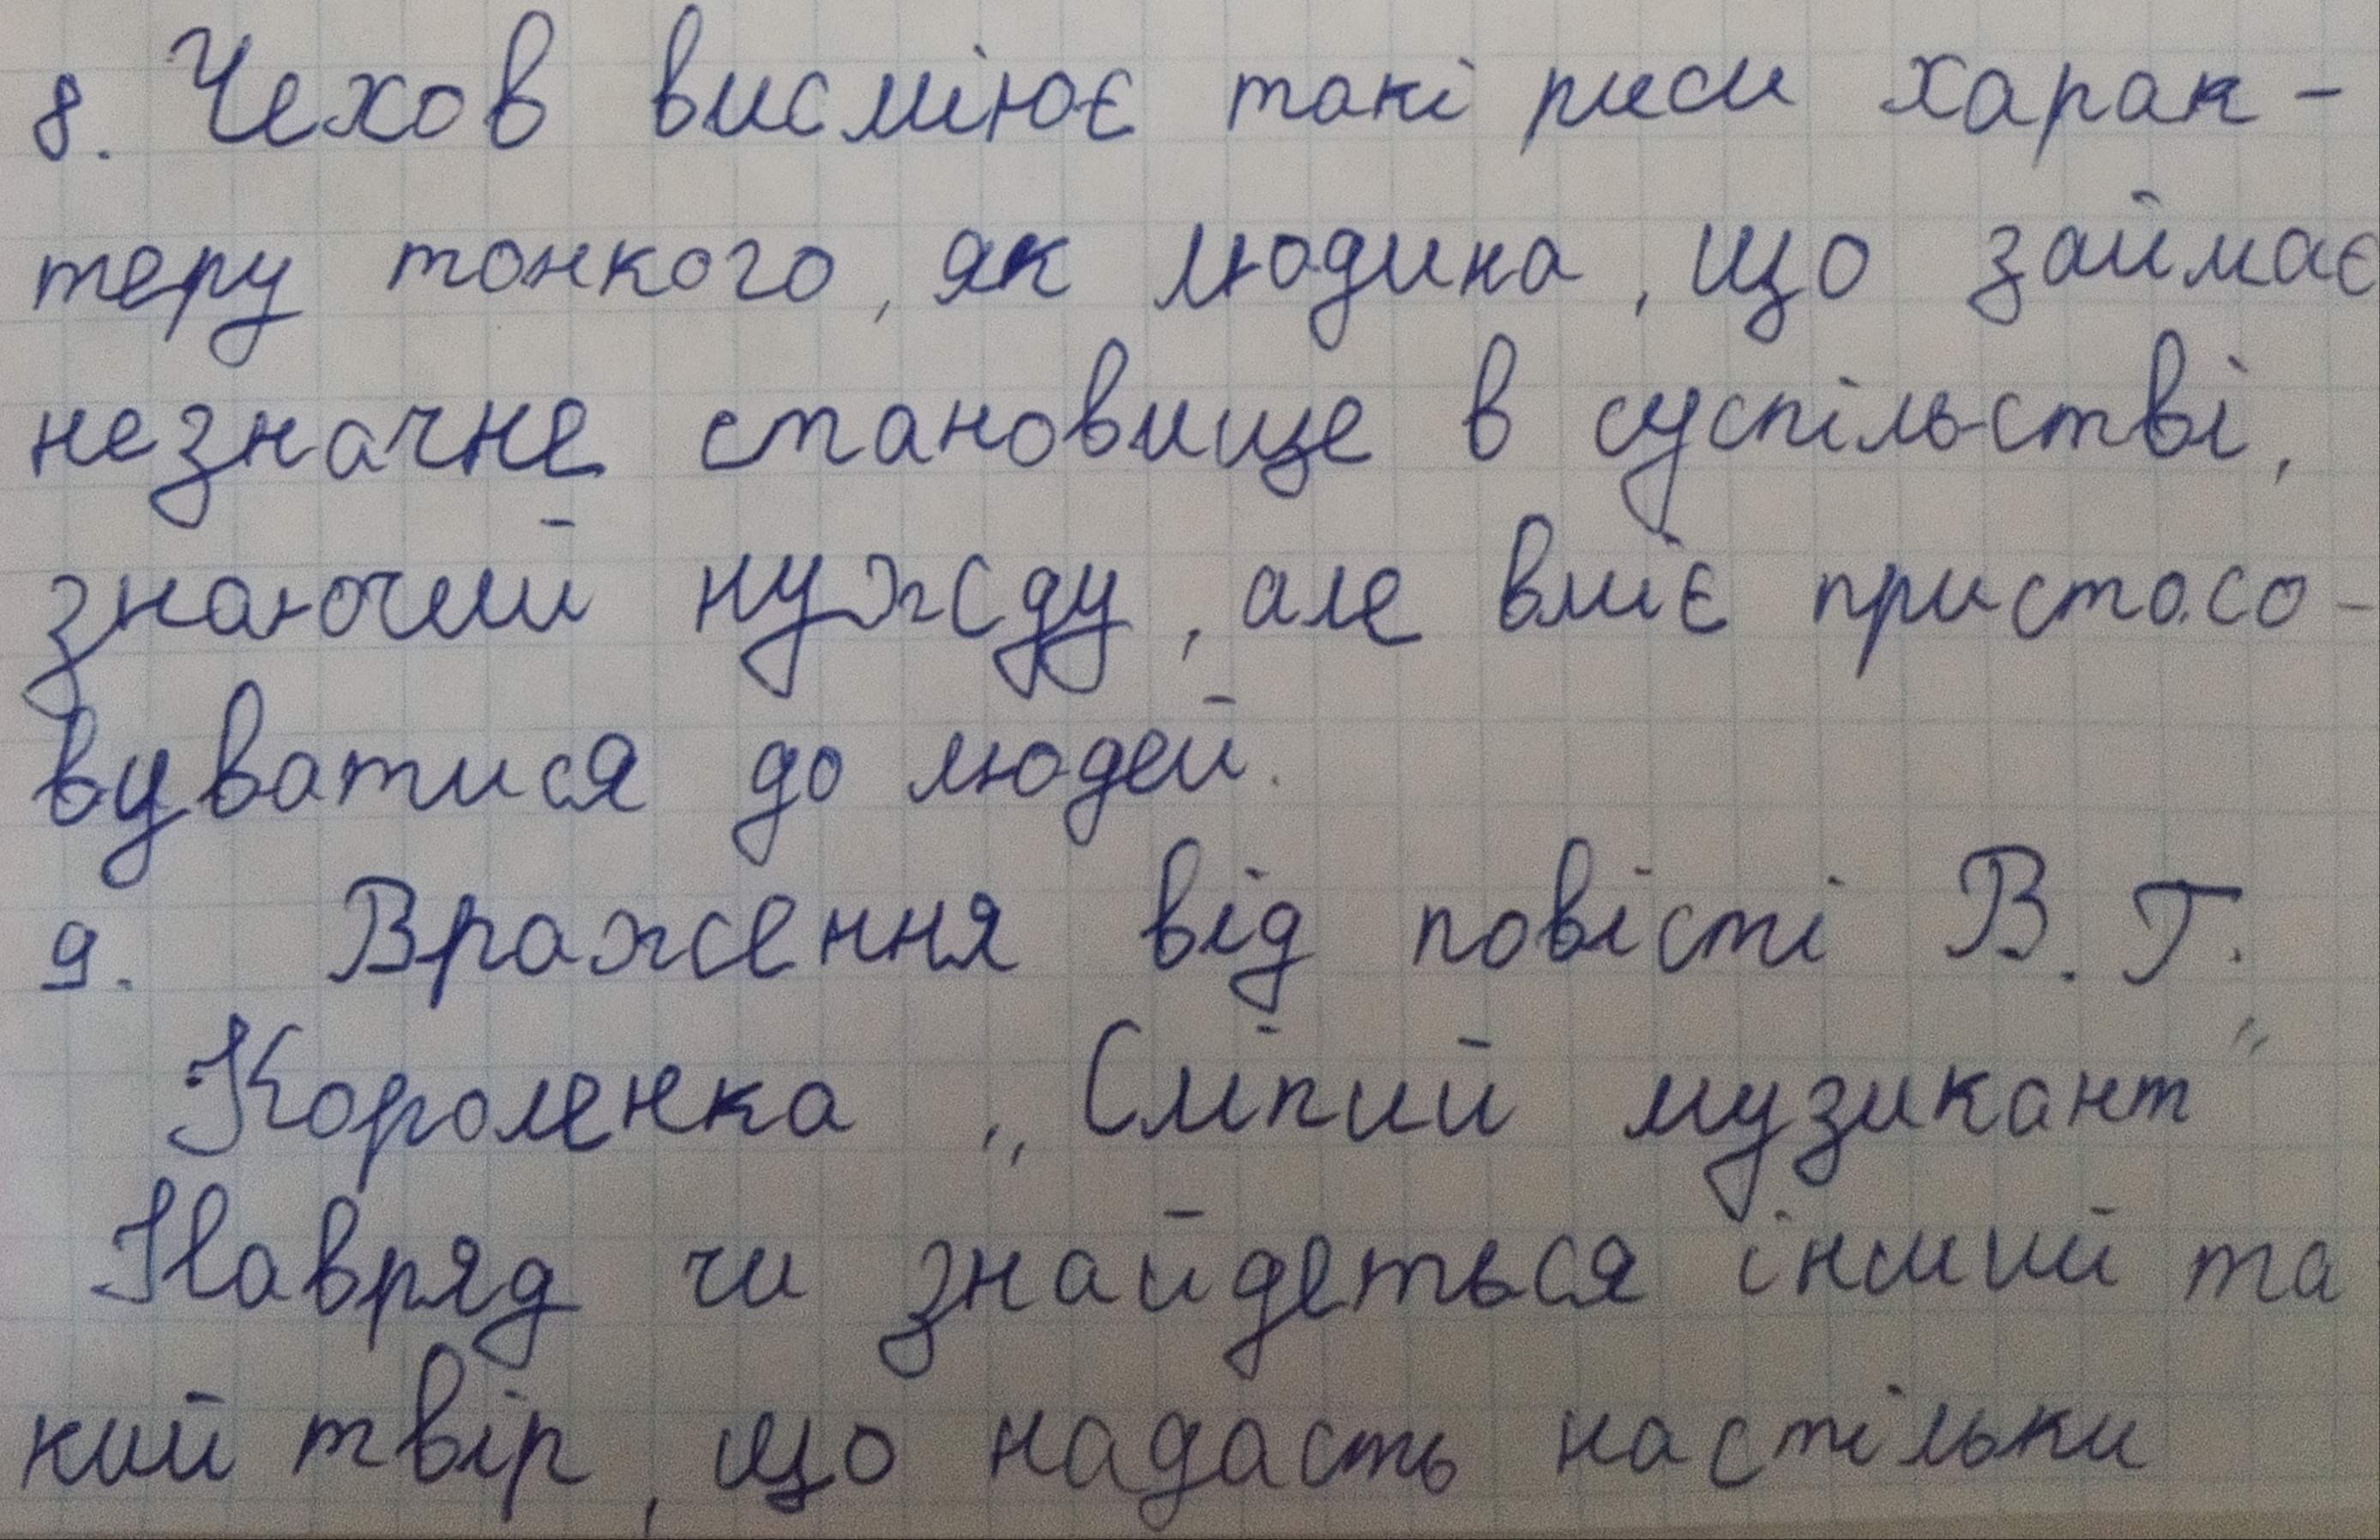 8. Чехов висміює такі риси харак-
теру тонкого, як людина, що займає
незначне становище в суспільстві,
знаючий нужду, але вміє пристосо-
вуватися до людей.
9. Враження від повісті В. Г.
Короленка „Сліпий музикант"
Навряд чи знайдеться інший та
кий твір, що надасть настільки